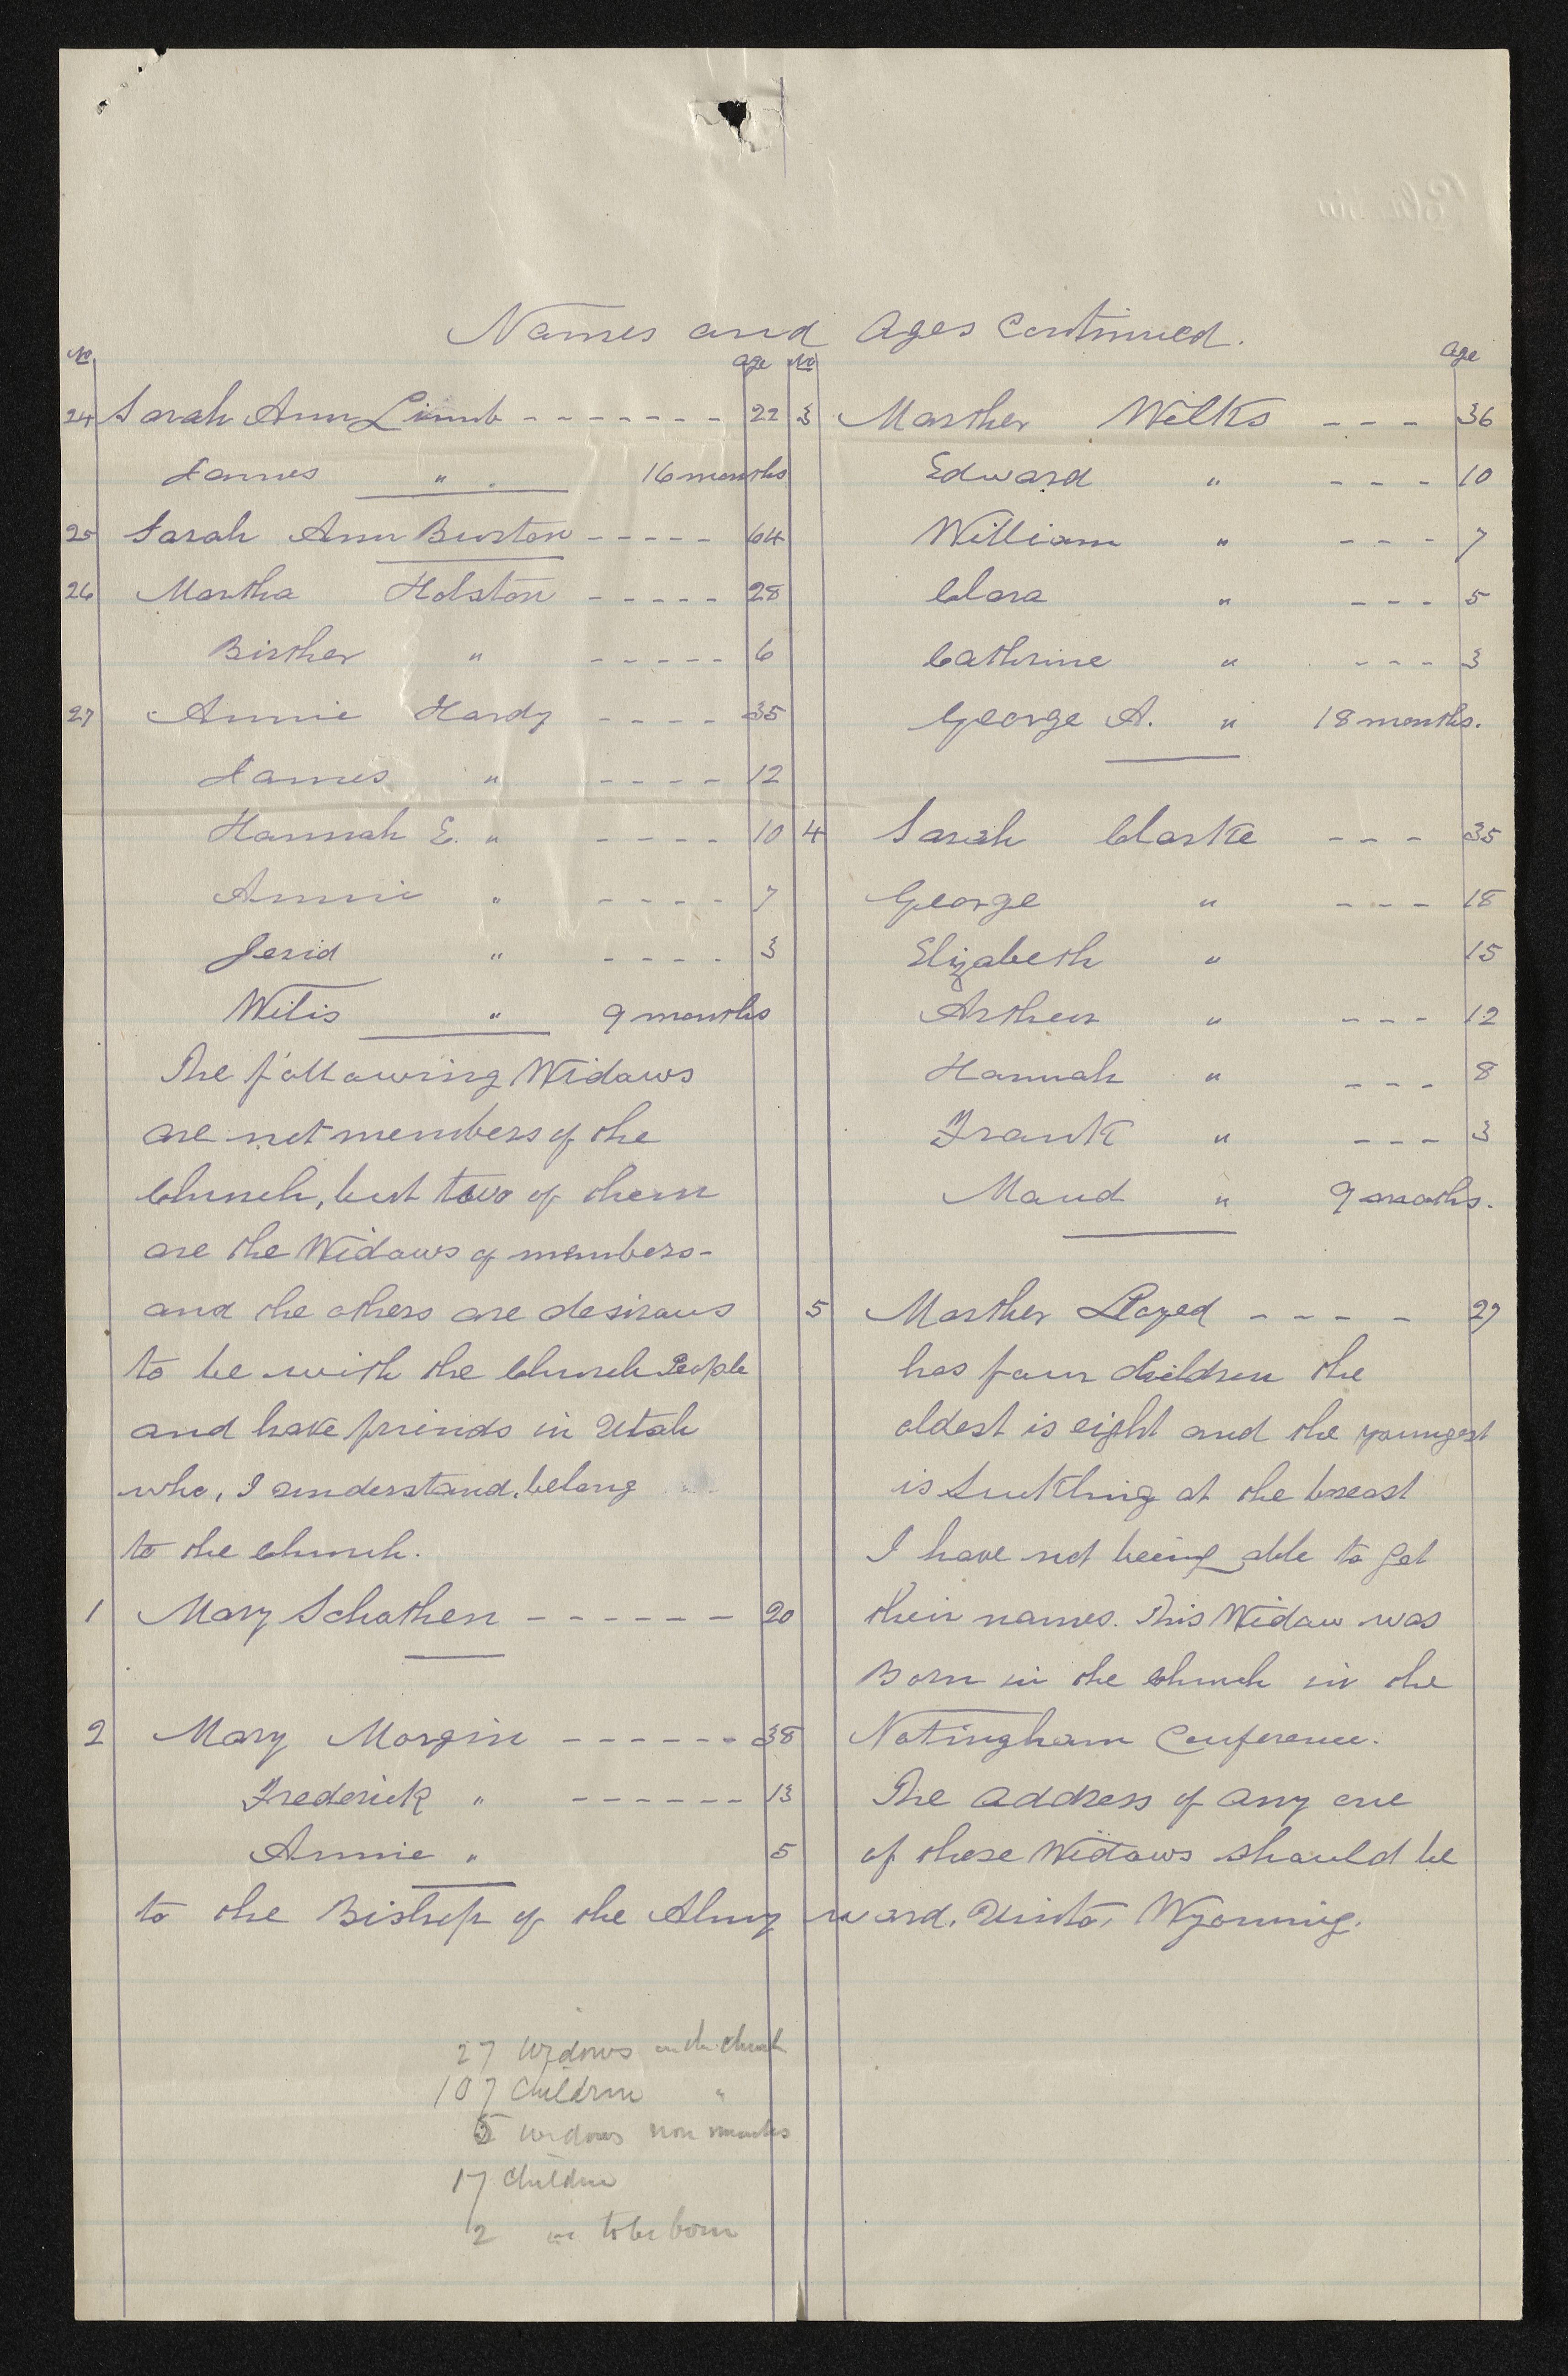 Names and Ages Continued.
No age
24 Sarah Ann Limb - - - - - - - 22
James " 16 months
25 Sarah Ann Burton - - - - - 64
26 Martha Holston - - - - - 28
Birther " - - - - - 6
27 Annie Hardy - - - - 35
James " - - - - 12
Hannah E. " - - - - 10
Annie " - - - - 7
Jerid " - - - - 3
Wilis " 9 months
The following Widows
are not members of the
Church, but two of them
are the Widows of members-
and the others are desirous
to be with the Church People
and have friends in Utah
who, I understand, belong
to the Church.
1 Mary Schothen - - - - - - 20
2 Mary Morgin - - - - - - 38
Frederick " - - - - - - 13
Annie " 5
No age
3 Marther Wilks - - - 36
Edward " - - - 10
William " - - - 7
Clara " - - - 5
Cathrine " - - - 3
George A. " 18 months.
4 Sarah Clarke - - - 35
George " - - - 18
Elizabeth " 15
Arther " - - - 12
Hannah " - - - 8
Frank " - - - 3
Maud " 9 moths.
5 Marther Lloyed - - - - 27
has four Children the
oldest is eight and the youngest
is Suckling at the breast
I have not being able to get
their names. This Widow was
Born in the Church in the
Notingham Conference.
The address of any one
of these Widows should be
to the Bishop of the Almy ward, Uinta, Wyoming.
27 Widows in the church
107 Children "
5 Widows non members
17 Children
2 to be born